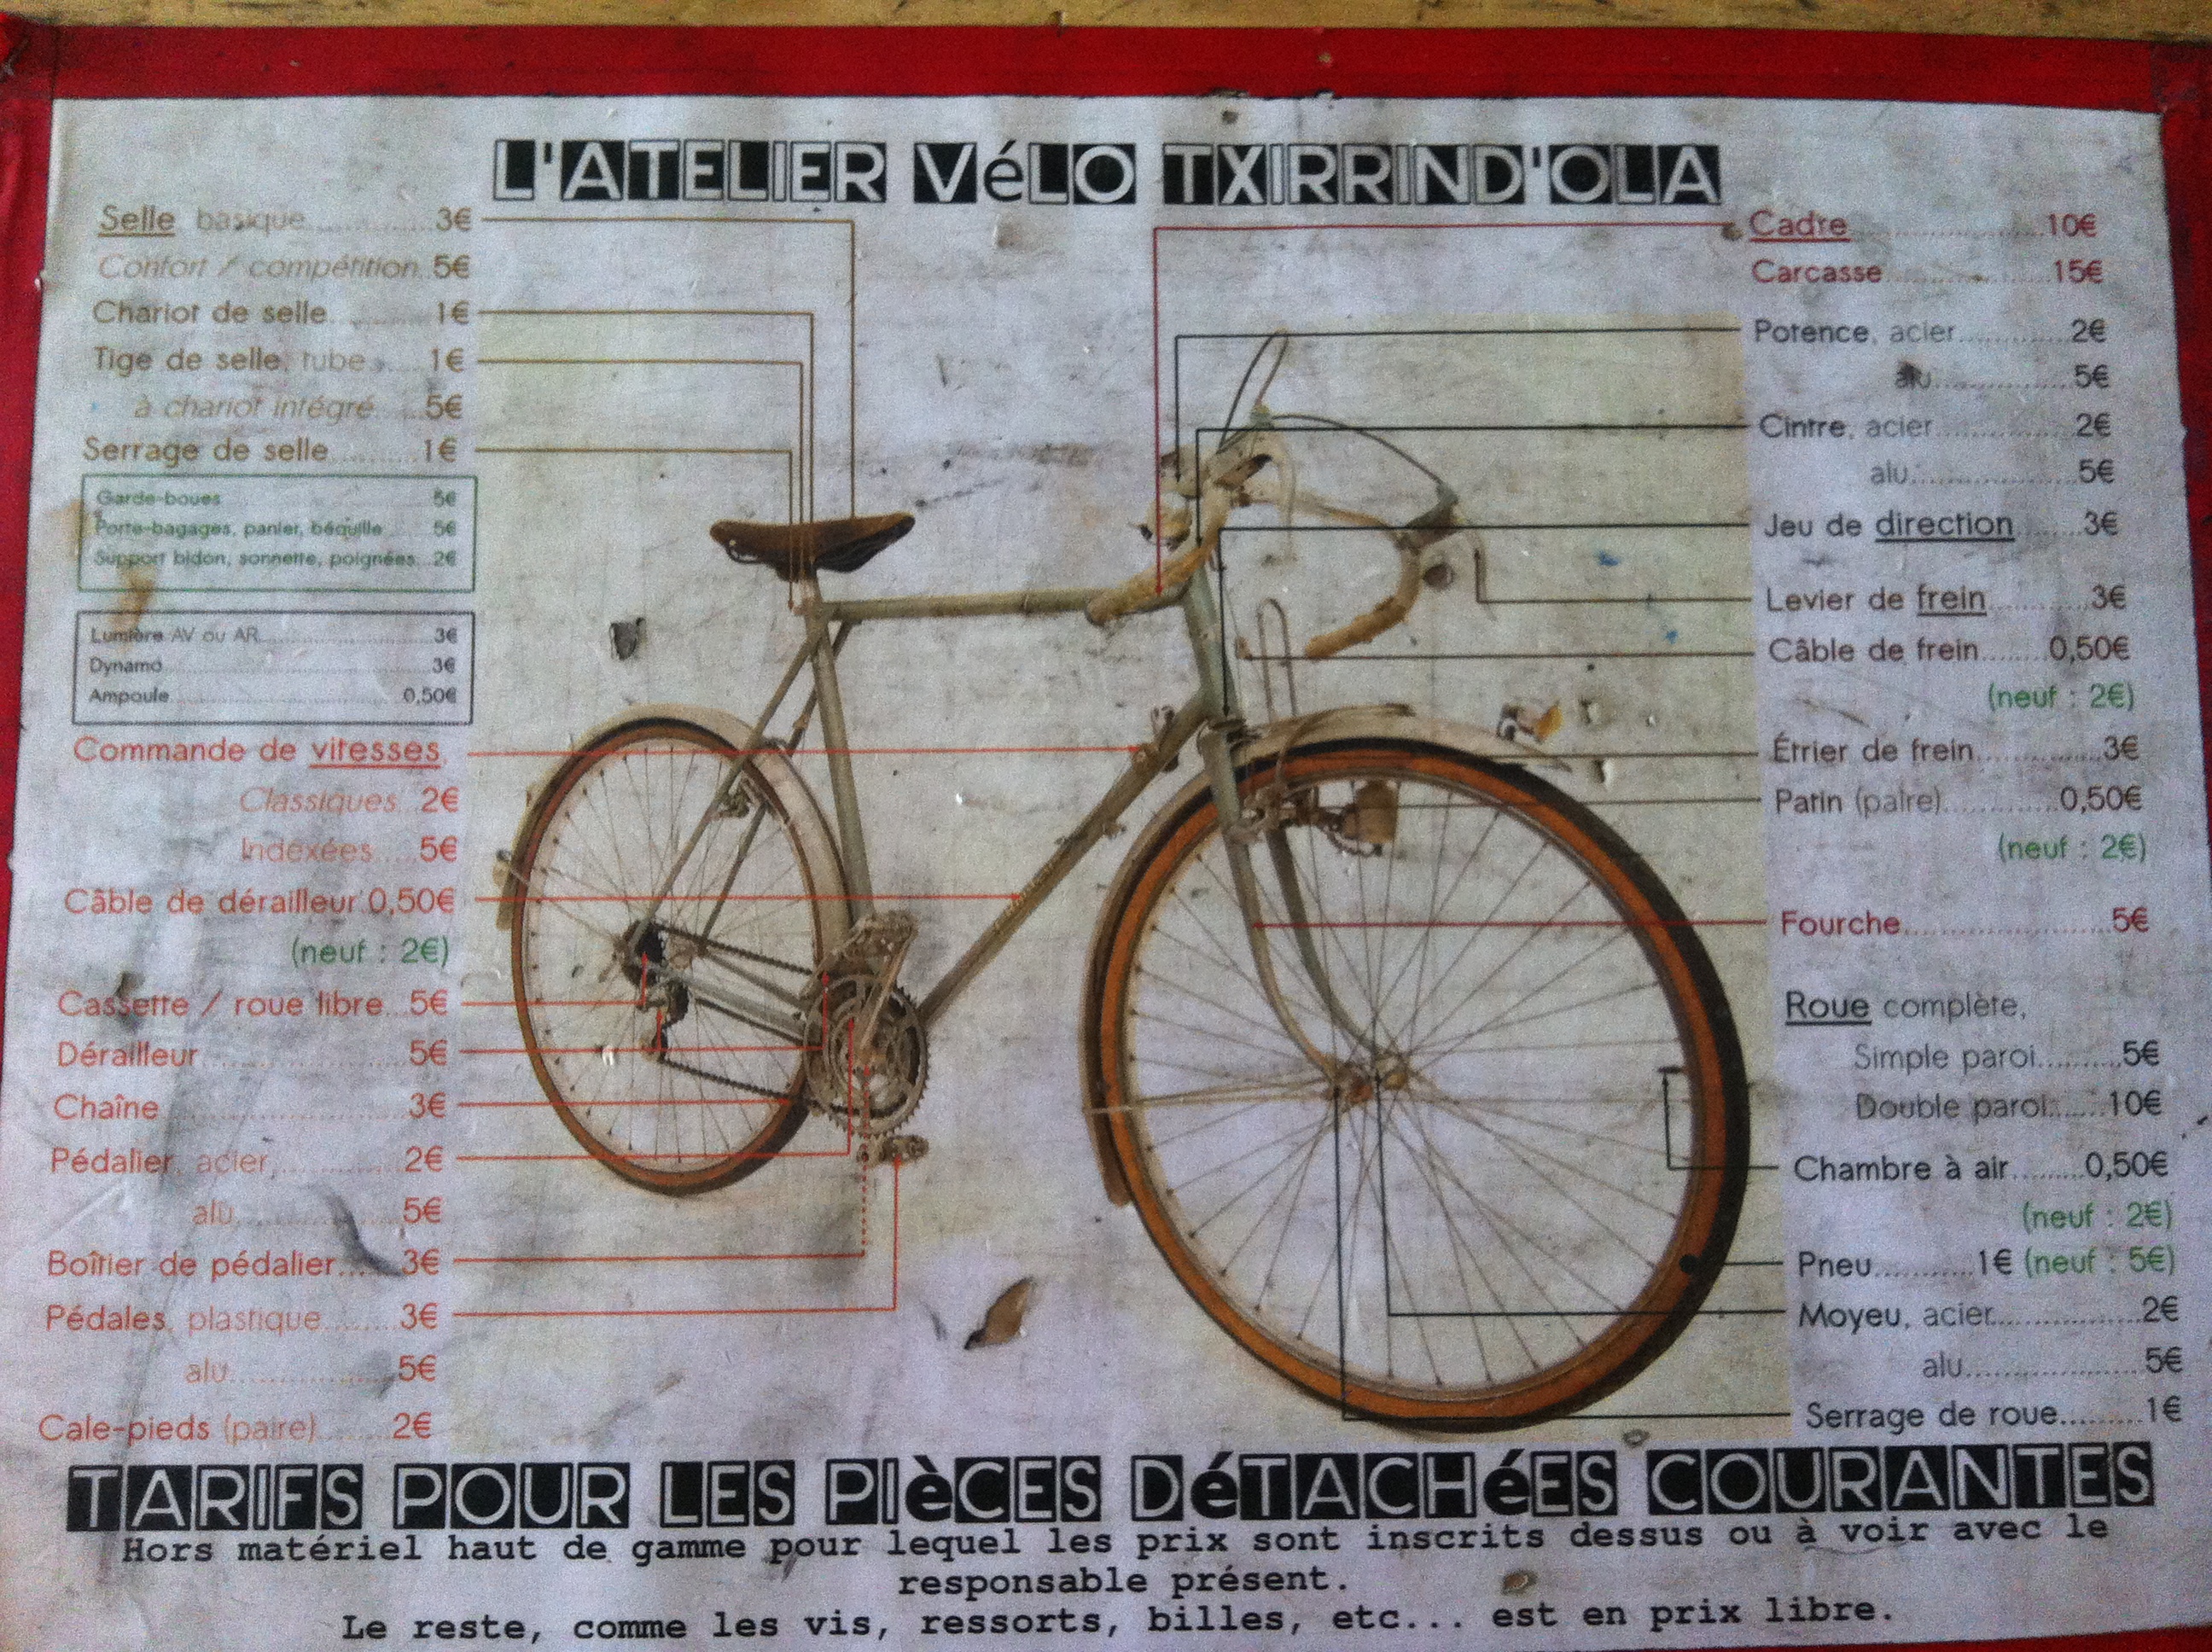 L'ATELIER VéLO TXIRRIND'OLA
Selle basique 3€
Confort / compétition 5€
Chariot de selle 1€
Tige de selle, tube 1€
à chariot intégré 5€
Serrage de selle 1€
Garde-boues 5€
Porte-bagages, panier, béquille 5€
Support bidon, sonnette, poignées 2€
Lumière AV ou AR 3€
Dynamo 3€
Ampoule 0,50€
Commande de vitesses
Classiques 2€
Indexées 5€
Câble de dérailleur 0,50€
(neuf : 2€)
Cassette / roue libre 5€
Dérailleur 5€
Chaîne 3€
Pédalier, acier, 2€
alu 5€
Boîtier de pédalier 3€
Pédales, plastique 3€
alu 5€
Cale-pieds (paire) 2€
Cadre 10€
Carcasse 15€
Potence, acier 2€
alu 5€
Cintre, acier 2€
alu 5€
Jeu de direction 3€
Levier de frein 3€
Câble de frein 0,50€
(neuf : 2€)
Étrier de frein 3€
Patin (paire) 0,50€
(neuf : 2€)
Fourche 5€
Roue complète,
Simple paroi 5€
Double paroi 10€
Chambre à air 0,50€
(neuf : 2€)
Pneu 1€ (neuf : 5€)
Moyeu, acier 2€
alu 5€
Serrage de roue 1€
TARIFS POUR LES PIèCES DéTACHéES COURANTES
Hors matériel haut de gamme pour lequel les prix sont inscrits dessus ou à voir avec le
responsable présent.
Le reste, comme les vis, ressorts, billes, etc... est en prix libre.